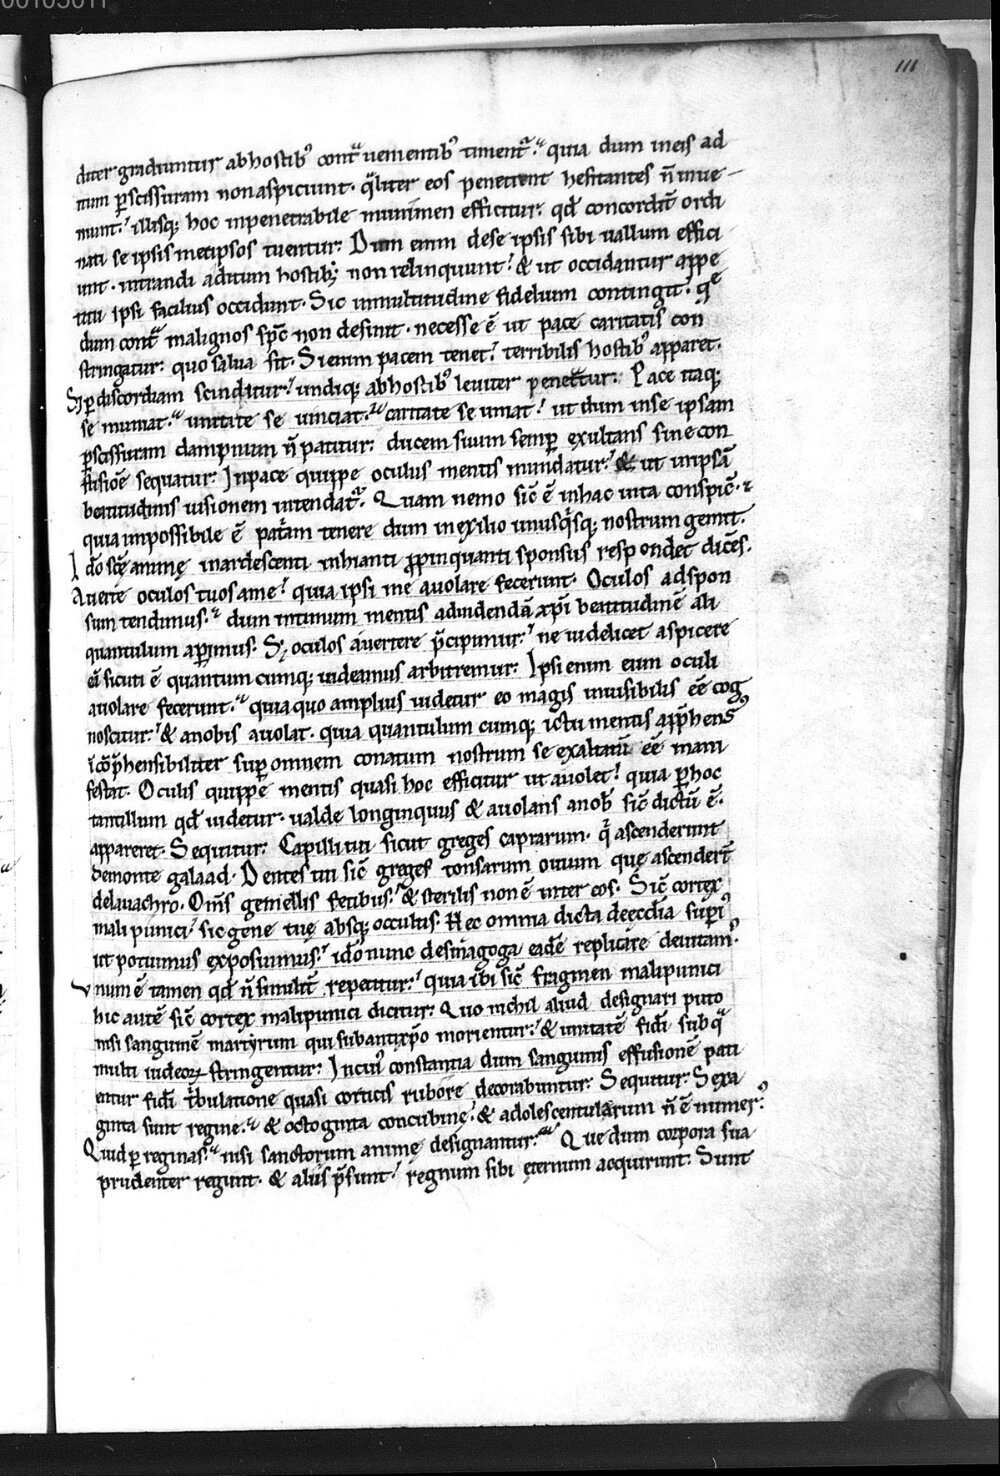 111
diter gradiuntur ab hostib; cont̄ uenientib; timent᷑. quia dum in eis ad
itum p̱ scissuram non aspiciunt. q̄liter eos penetrent hesitantes n̄ inue
niunt. illisq; hoc inpenetrabile munimen efficitur. qđ concordit̄ ordi
nati se ipsis metipsos tuentur. Dum enim de se ipsis sibi uallum effici
unt. intrandi aditum hostib; non relinquunt. & ut occidantur appe
titi ipsi facilius occidunt. Sic in multitudine fidelium contingit. que
dum cont̄ malignos sp̄c non desinit. necesse ē ut pace caritatis con
stringatur. quo salua sit. Si enim pacem tenet. terribilis hostib; apparet.
Si p̱ discordiam scinditur. undiq; ab hostib; leuiter penetratur. Pace itaq;
se muniat. unitate se uinciat. caritate se uniat. ut dum in se ipsam
p̱ scissuram dampnum n̄ patitur. ducem suum semp̱ exultans sine con
fusiōe sequatur. In pace quippe oculus mentis mundatur. & ut in ipsā
beatitudinis uisionem intendat᷑. Quam nemo sic̄ ē in hac uita conspic̄.
quia impossibile ē pat̄am tenere dum in exilio unusq̄sq; nostrum gemit.
Ido sc̄ę animę inardescenti inhianti ꝓpinquanti sponsus respondet dic̄es.
Auerte oculos tuos a me. quia ipsi me auolare fecerunt. Oculos ad spon
sum tendimus. dum intimum mentis ad uidendā xp̄i beatitudinē ali
quantulum ap̱imus. Sꝫ oculos auertere p̄cipimur. ne uidelicet aspicere
eū sicuti ē quantum cumq; uideamus arbitremur. Ipsi enim eum oculi
auolare fecerunt. quia quo amplius uidetur eo magis inuisibilis ēē cog
noscitur. & a nobis auolat. quia quantulum cumq; ictu mentis app̄hensꝰ
īcōp̄hensibiliter sup̱ omnem conatum nostrum se exaltatū ēē mani
festat. Oculis quippe mentis quasi hoc efficitur ut auolet. quia p̱ hoc
tantillum qđ uidetur. ualde longinquus & auolans a nob̄ sic̄ dictū ē.
appareret. Sequitur. Capilli tui sicut greges caprarum. q̄ ascenderunt
de monte galaad. Dentes tui sic̄ greges tonsarum ouium quę ascender̄t
de lauachro. Om̄s gemellis fetibus. & sterilis non ē inter eos. Sic̄ cortex
mali punici sic genę tuę absq; occultis. Hec omnia dicta de ecc̄lia sup̱iꝰ
ut potuimus exposuimus. ido nunc de sinagoga eadē replicare deuitamꝰ.
Vnum ē tamen qđ n̄ similit̄ repetitur. quia ibi sic̄ fragmen mali punici
hic autē sic̄ cortex mali punici dicitur. Quo nichil aliud designari puto
nisi sanguinē martyrum qui sub antixp̄o morientur. & unitatē fidi sub q̄
multi iudeoꝝ stringentur. In cuiꝰ constantia dum sanguinis effusionē pati
entur fidi t̄bulatione quasi corticis rubore decorabuntur. Sequitur. Sexa
ginta sunt reginę. & octoginta concubinę. & adolescentularum n̄ ē numerꝰ.
Quid p̱ reginas. nisi sanctorum animę designantur. Quę dum corpora sua
prudenter regunt. & aliis p̄sunt. regnum sibi ęternum acquirunt. Sunt